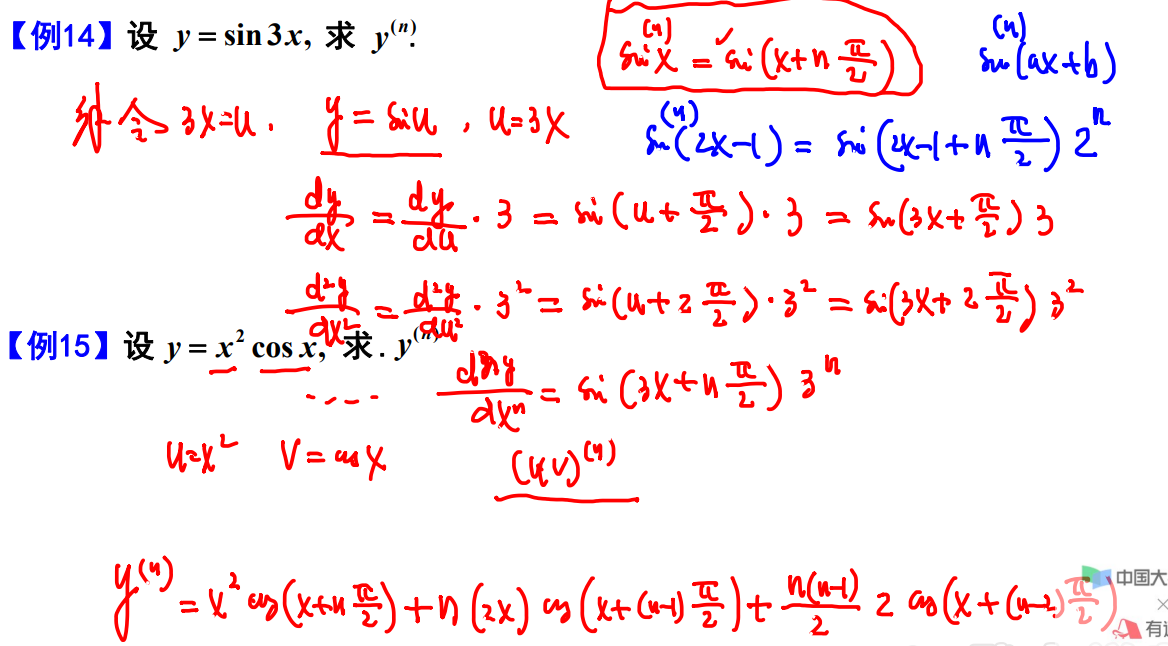 【例14】设 y = sin 3x, 求 y⁽ⁿ⁾.
sin⁽ⁿ⁾x = sin(x+n π/2)
sin⁽ⁿ⁾(ax+b)
解 令 3x=u. y = sin u , u=3x
sin⁽ⁿ⁾(2x-1) = sin(2x-1+n π/2) 2ⁿ
dy/dx = dy/du · 3 = sin(u+π/2)·3 = sin(3x+π/2) 3
d²y/dx² = d²y/du² · 3² = sin(u+2 π/2)·3² = sin(3x+2 π/2) 3²
【例15】设 y = x² cos x, 求. y⁽ⁿ⁾
dⁿy/dxⁿ = sin(3x+n π/2) 3ⁿ
u=x² v=cos x (uv)⁽ⁿ⁾
y⁽ⁿ⁾ = x² cos(x+n π/2) + n(2x) cos(x+(n-1) π/2) + n(n-1)/2 2 cos(x+(n-2) π/2)
中国大